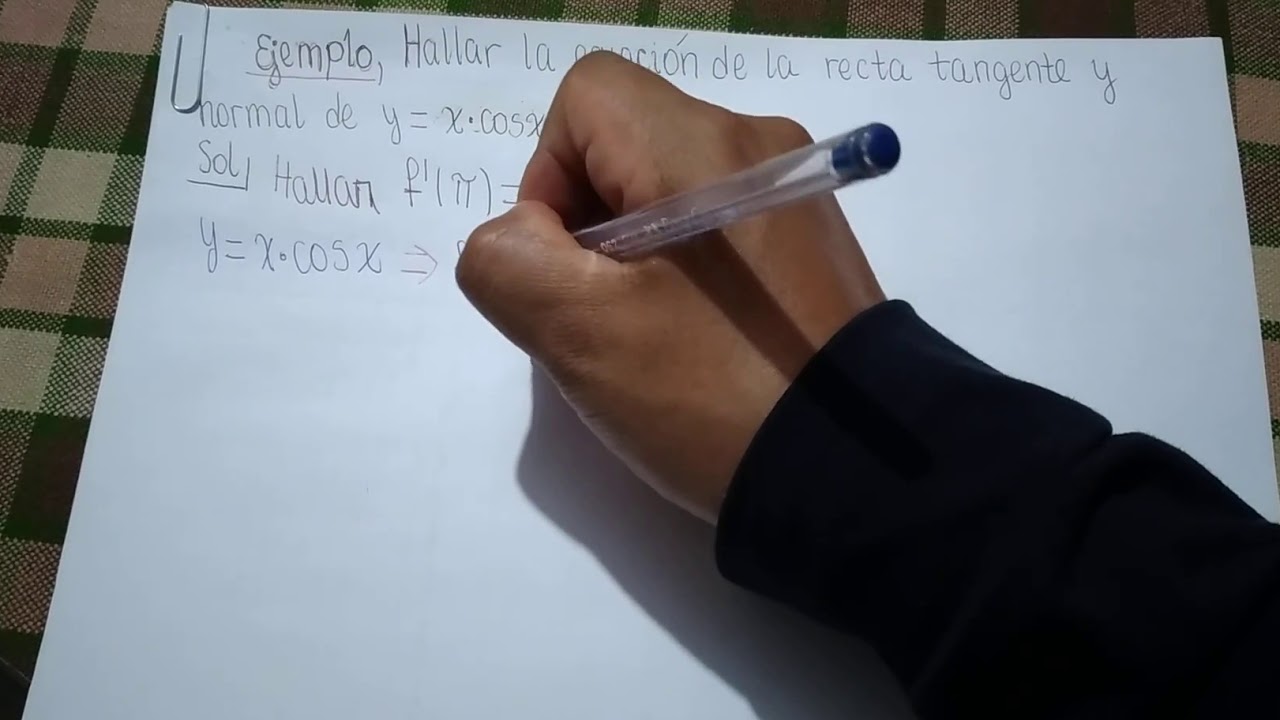 Ejemplo, Hallar la ecuación de la recta tangente y
normal de y = x·cosx
Sol/ Hallar f'(π) =
y = x·cosx ⇒